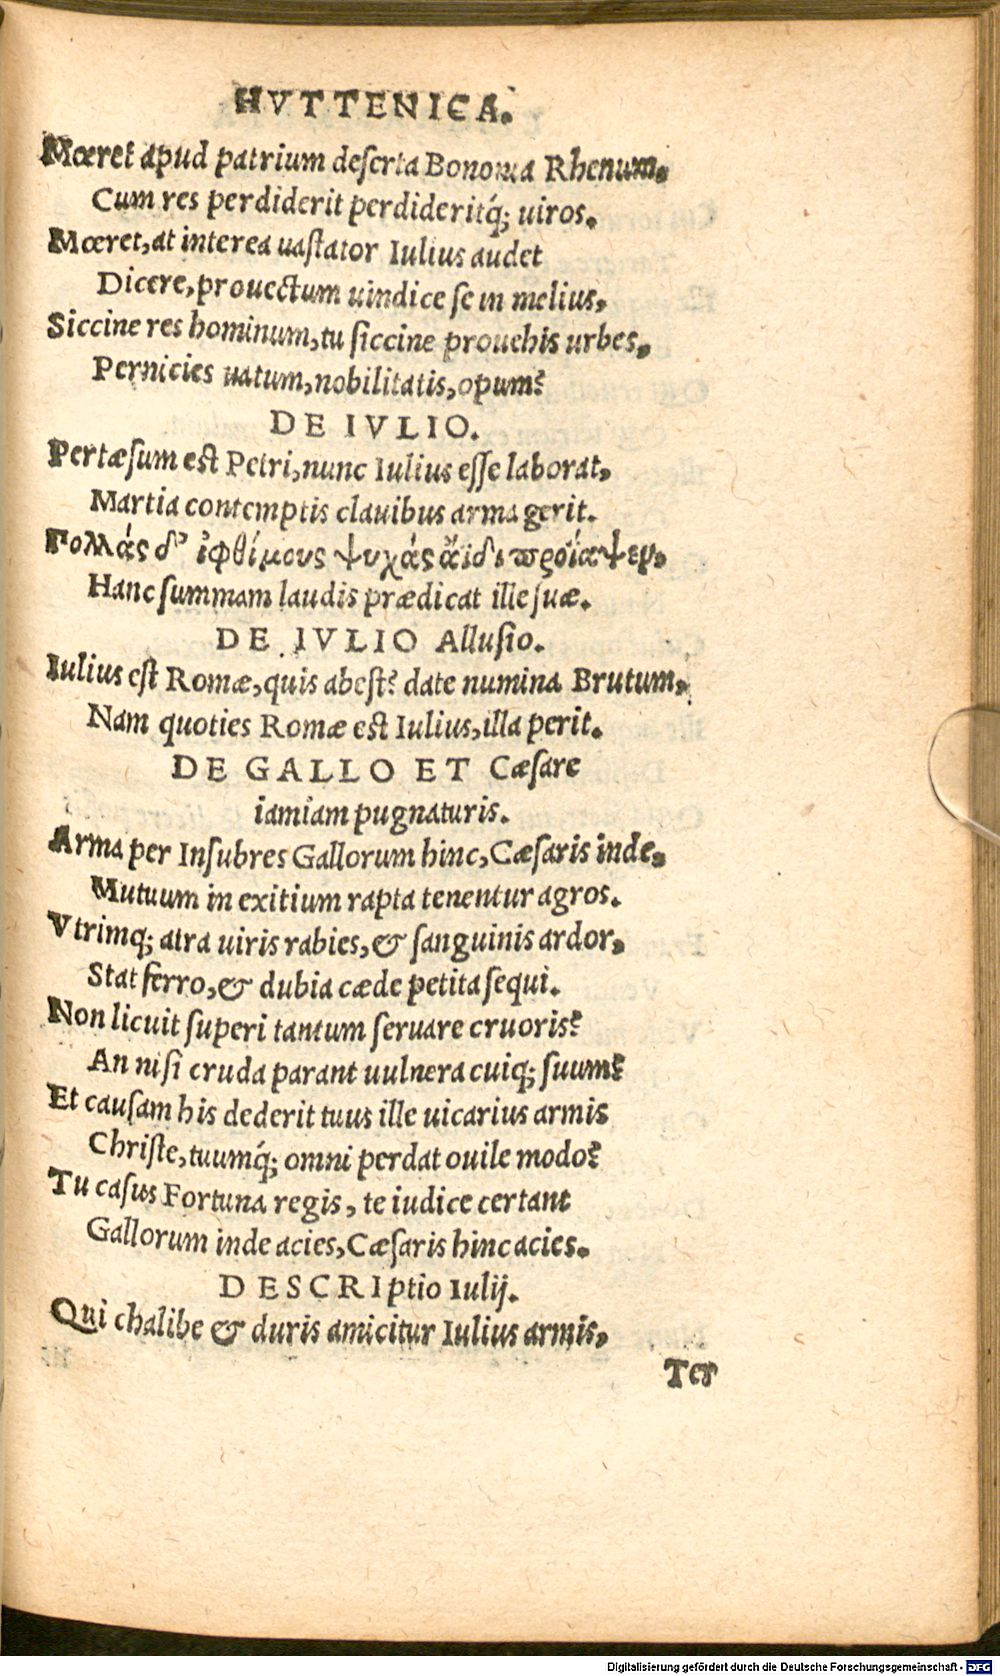 HVTTENICA.
Mœret apud patrium deſerta Bononia Rhenum,
Cum res perdiderit perdideritq́; uiros.
Mœret, at interea uaſtator Iulius audet
Dicere, prouectum uindice ſe in melius,
Siccine res hominum, tu ſiccine prouehis urbes,
Pernicies uatum, nobilitatis, opum?
DE IVLIO.
Pertæſum eſt Petri, nunc Iulius eſſe laborat,
Martia contemptis clauibus arma gerit.
Γολλάς δ' ἰφθίμους ψυχάς ἄϊδι προΐαψερ,
Hanc ſummam laudis prædicat ille ſuæ.
DE IVLIO Alluſio.
Iulius eſt Romæ, quis abeſt? date numina Brutum,
Nam quoties Romæ eſt Iulius, illa perit.
DE GALLO ET Cæſare
iamiam pugnaturis.
Arma per Inſubres Gallorum hinc, Cæſaris inde,
Mutuum in exitium rapta tenentur agros.
Vtrimq; atra uiris rabies, & ſanguinis ardor,
Stat ferro, & dubia cæde petita ſequi.
Non licuit ſuperi tantum ſeruare cruoris?
An niſi cruda parant uulnera cuiq; ſuum?
Et cauſam his dederit tuus ille uicarius armis
Chriſte, tuumq́; omni perdat ouile modo?
Tu caſus Fortuna regis, te iudice certant
Gallorum inde acies, Cæſaris hinc acies.
DESCRIptio Iulij.
Qui chalibe & duris amicitur Iulius armis,
Ter
Digitalisierung gefördert durch die Deutsche Forschungsgemeinschaft - DFG